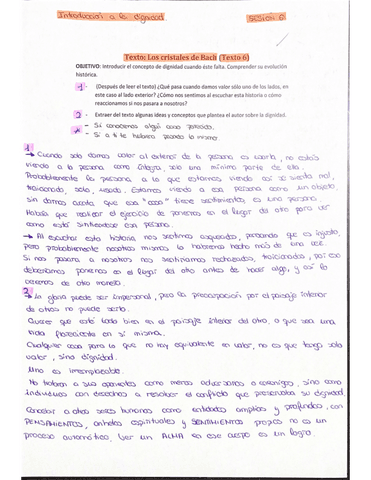 Introducción a la dignidad
SESIÓN 6
Texto: Los cristales de Bach (Texto 6)
OBJETIVO: Introducir el concepto de dignidad cuando éste falta. Comprender su evolución
histórica.
1- (Después de leer el texto) ¿Qué pasa cuando damos valor sólo uno de los lados, en
este caso al lado exterior? ¿Cómo nos sentimos al escuchar esta historia o cómo
reaccionamos si nos pasara a nosotros?
2- Extraer del texto algunas ideas y conceptos que plantea el autor sobre la dignidad.
- Si conocemos algún caso
- Si a ti te hubiera pasado lo mismo.
1
→ Cuando solo damos valor al exterior de la persona es
viendo a la persona como íntegra, solo una mínima parte de ella.
Probablemente la persona a la que estamos viendo así se sienta mal,
traicionado, solo, usado. Estamos viendo a esa persona como un objeto,
sin darnos cuenta que esa "cosa" tiene sentimientos, es una persona.
Habría que realizar el ejercicio de ponernos en el lugar del otro para ver
como está sintiéndose esa persona.
→ Al escuchar esta historia nos sentimos asqueados, pensando que es injusto,
pero probablemente nosotros mismos lo habremos hecho más de una vez.
Si nos pasara a nosotros nos sentiríamos rechazados, traicionados, por eso
deberíamos ponernos en el lugar del otro antes de hacer algo, y así lo
veremos de otra manera.
2
→ La gloria puede ser impersonal, pero la preocupación por el paisaje interior
de otros no puede serlo.
Querer que esté todo bien en el paisaje interior del otro, a que sea una
vida floreciente en sí misma.
Cualquier cosa para la que no hay equivalente en valor, no es que tenga solo
valor, sino dignidad.
Uno es irremplazable.
No trataron a sus oponentes como meros adversarios o enemigos, sino como
individuos con derechos a resolver el conflicto que preservaba su dignidad.
Concebir a otros seres humanos como entidades amplias y profundas, con
PENSAMIENTOS, anhelos espirituales y SENTIMIENTOS propios no es un
proceso automático. Ver un ALMA en ese cuerpo es un logro.